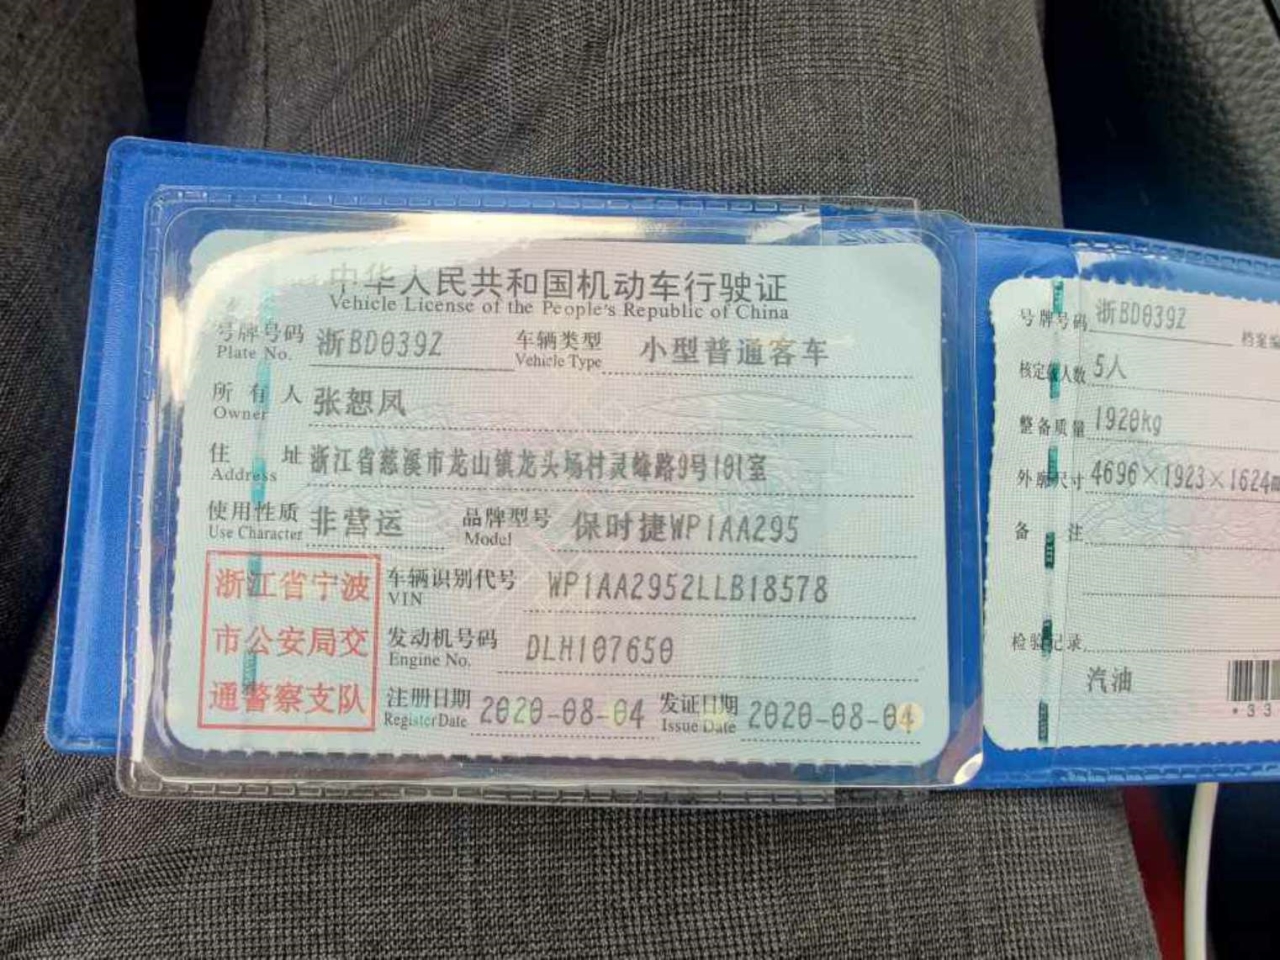 中华人民共和国机动车行驶证
Vehicle License of the People's Republic of China
号牌号码 浙BD039Z 车辆类型 小型普通客车
Plate No. Vehicle Type
所有人 张恕凤
Owner
住址 浙江省慈溪市龙山镇龙头场村灵峰路9号101室
Address
使用性质 非营运 品牌型号 保时捷WP1AA295
Use Character Model
浙江省宁波
市公安局交
通警察支队
车辆识别代号 WP1AA2952LLB18578
VIN
发动机号码 DLH107650
Engine No.
注册日期 2020-08-04 发证日期 2020-08-04
Register Date Issue Date
号牌号码 浙BD039Z 档案编
核定载人数 5人
整备质量 1920kg
外廓尺寸 4696×1923×1624
备注
检验记录
汽油
*33